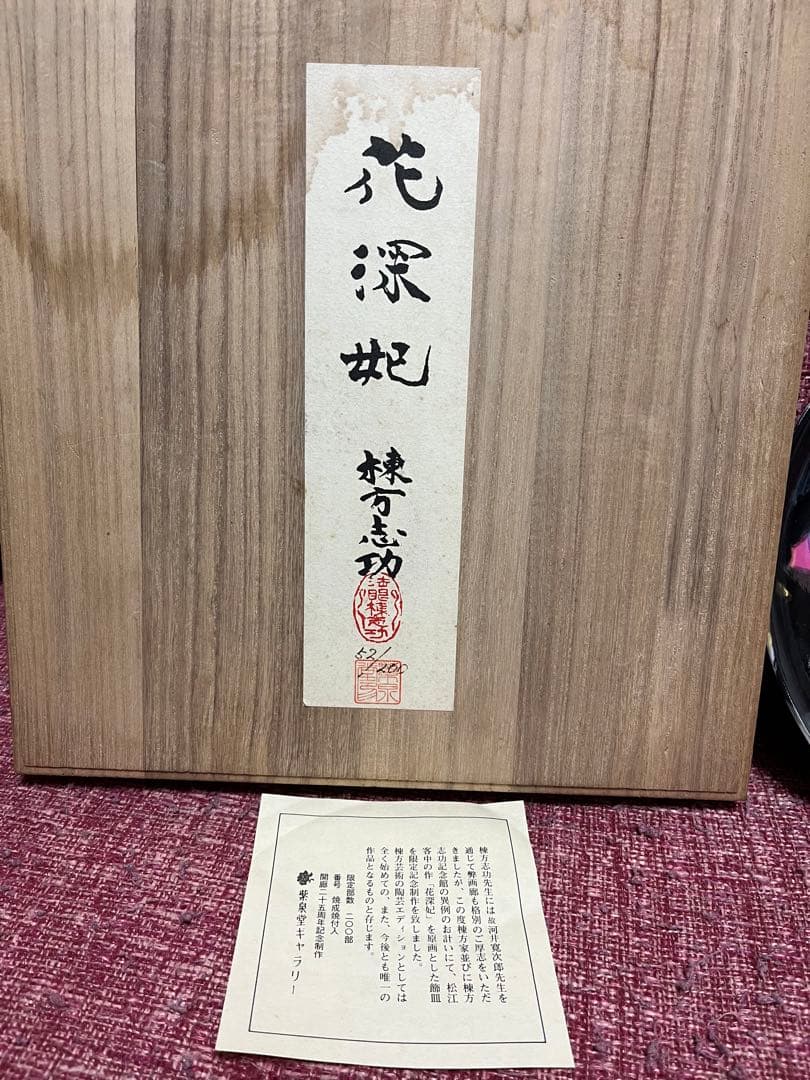 花深妃
棟方志功
52/200
棟方志功先生には故河井寛次郎先生を
通じて弊画廊も格別のご厚志をいただ
きましたが、この度棟方家並びに棟方
志功記念館の異例のお計いにて、松江
客中の作「花深妃」を原画とした飾皿
を限定記念制作を致しました。
棟方芸術の陶芸エディションとしては
全く始めての、また、今後とも唯一の
作品となるものと存じます。
限定部数 二〇〇部
番号 焼成焼付入
開廊二十五周年記念制作
紫泉堂ギャラリー